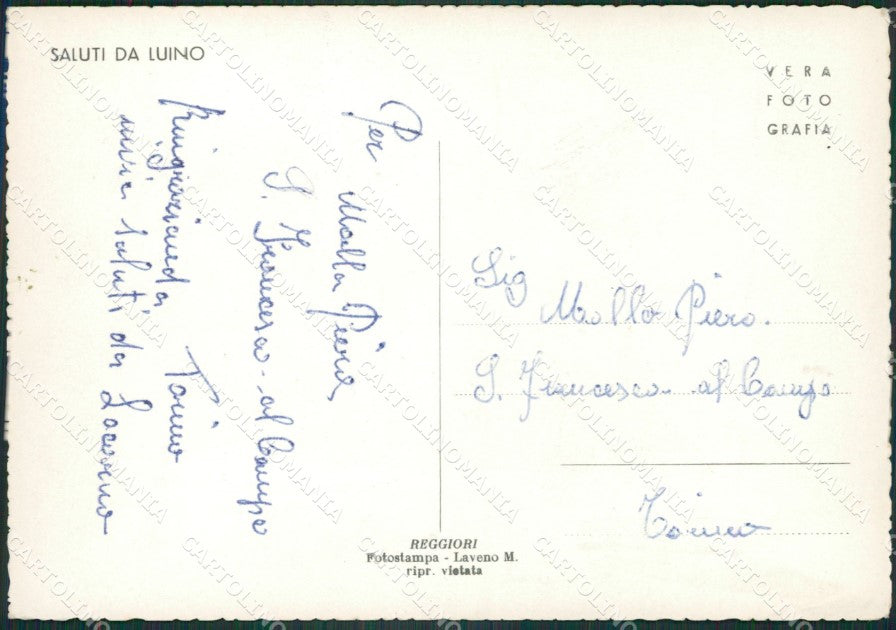 SALUTI DA LUINO
VERA
FOTO
GRAFIA
Per Molla Piera
S. Francesco al Campo
Torino
Ringraziando
invia saluti da Locarno
Sig
Mollo Piero.
S. Francesco al Campo
Torino
REGGIORI
Fotostampa - Laveno M.
ripr. vietata
CARTOLINOMANIA